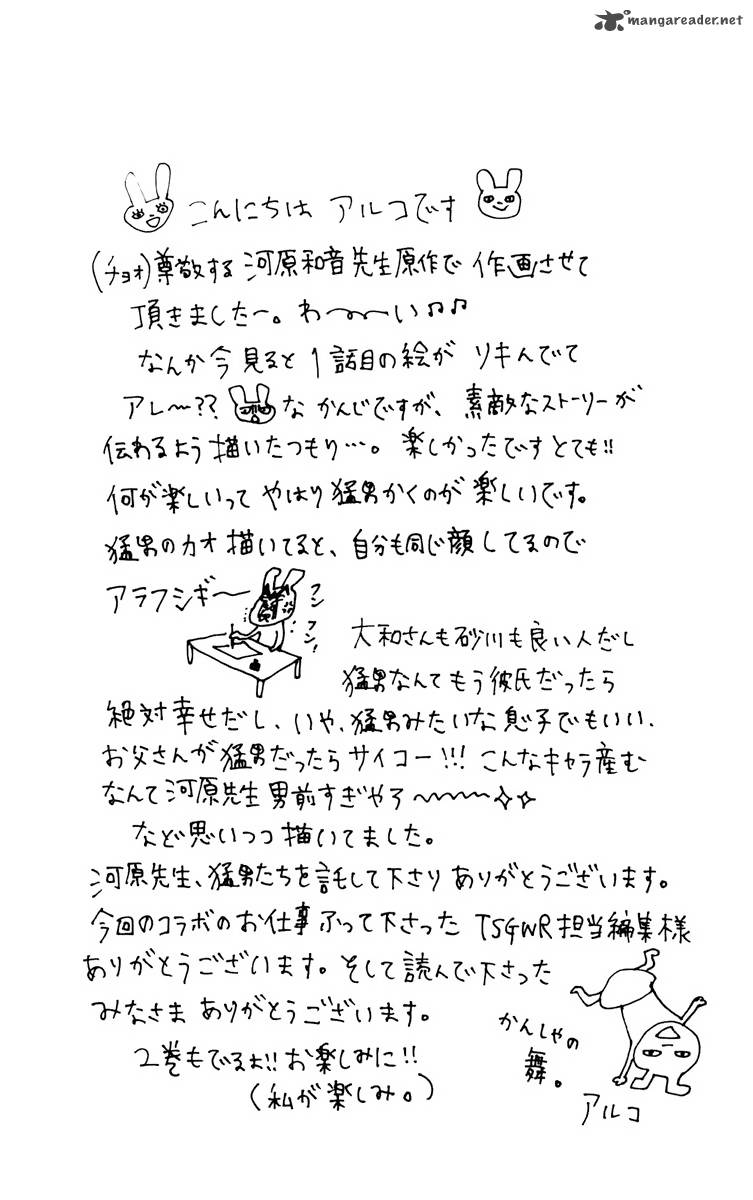 mangareader.net
こんにちは アルコです
(チョオ)尊敬する 河原和音先生原作で 作画させて
頂きました〜。わ〜〜い♪♪
なんか今見ると 1話目の絵が リキんでて
アレ〜?? な かんじですが、素敵なストーリーが
伝わるよう描いたつもり…。楽しかったです とても!!
何が楽しいって やはり猛男かくのが 楽しいです。
猛男のカオ描いてると、自分も同じ顔してるので
アラフシギ〜
フンフン!
大和さんも砂川も良い人だし
猛男なんてもう彼氏だったら
絶対幸せだし、いや、猛男みたいな息子でもいい、
お父さんが猛男だったらサイコー!!! こんなキャラ産む
なんて河原先生男前すぎやろ〜〜〜✧✧
など思いつつ描いてました。
河原先生、猛男たちを託して下さり ありがとうございます。
今回のコラボのお仕事ふって下さった TSGWR担当編集様
ありがとうございます。そして読んで下さった
みなさま ありがとうございます。
2巻もでるよ!! お楽しみに!!
(私が楽しみ。)
かんしゃの
舞。
アルコ